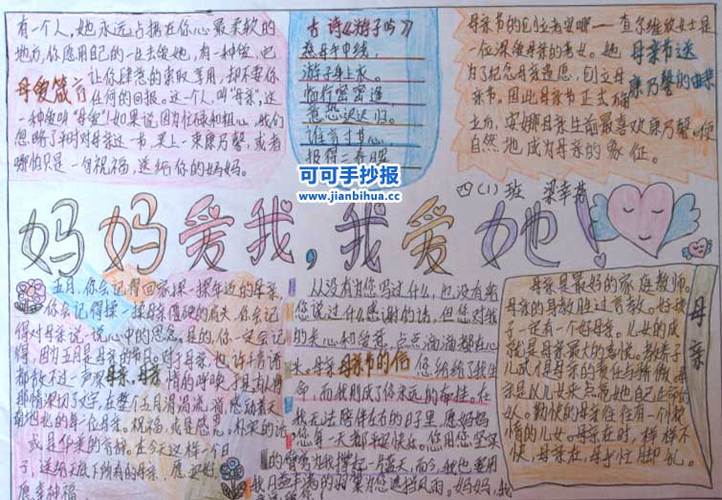 有一个人,她永远占据在你心最柔软的
地方,你愿用自己的一生去爱她,有一种爱,它
母爱箴言 让你肆意的索取、享用,却不要你
任何的回报。这一个人,叫"母亲",这
一种爱叫"母爱"!如果说,因为忙碌和粗心,我们
忽略了平时对母亲这一节,买上一束康乃馨,或者
哪怕只是一句祝福,送给你的妈妈。
古诗《游子吟》
慈母手中线,
游子身上衣。
临行密密逢,
意恐迟迟归。
谁言寸草心
报得三春晖
母亲节的创立者安娜——查尔维丝女士是
一位深爱母亲的孝女。她
为了纪念母亲遗愿,创立母
亲节。因此母亲节正式确
立后,安娜母亲生前最喜欢康乃馨。便
自然地成为母亲的象征。
母亲节送
康乃馨的由来
可可手抄报
www.jianbihua.cc
四(1)班 梁幸
妈妈爱我,我爱她!
五月,你会记得回家探一探年迈的母亲,
你会记得探一探母亲
得对母亲说一说心中的思念。是的,你一定会记
得,因为五月是母亲的节日。对于母亲,也许千言万语
都敌不过一声
母亲,母亲
情的呼唤
那情深切切的字,在整个五月
母亲。祝福,或是感恩,朴实的话
或是华美的言辞。在今天这样一个日
子,送给天底下所有的母亲,愿
愿幸福
从没有为您写过什么,也没有亲
您说过什么感谢的话,但您对我
的关心和爱护,点点滴滴都在心
头。母亲
母亲节的信
您给给了我生
命,而我则成了你永远的牵挂。在
我无法陪伴左右的日子里,愿妈妈
您每一天都平安快乐。您用您坚实
的臂弯为我撑起一片蓝天;而今,我也要用
我日益丰满的羽翼为您遮挡风雨。妈妈,我
母亲是最好的家庭教师。
母亲的身教胜过言教。好孩
子一定有一个好母亲。儿女的成
就是母亲最大的喜悦。教养子
儿女
人。勤快的母亲往往有一个
情的儿女。母亲在时,样样不
快,母亲在,母手忙脚乱。
母亲